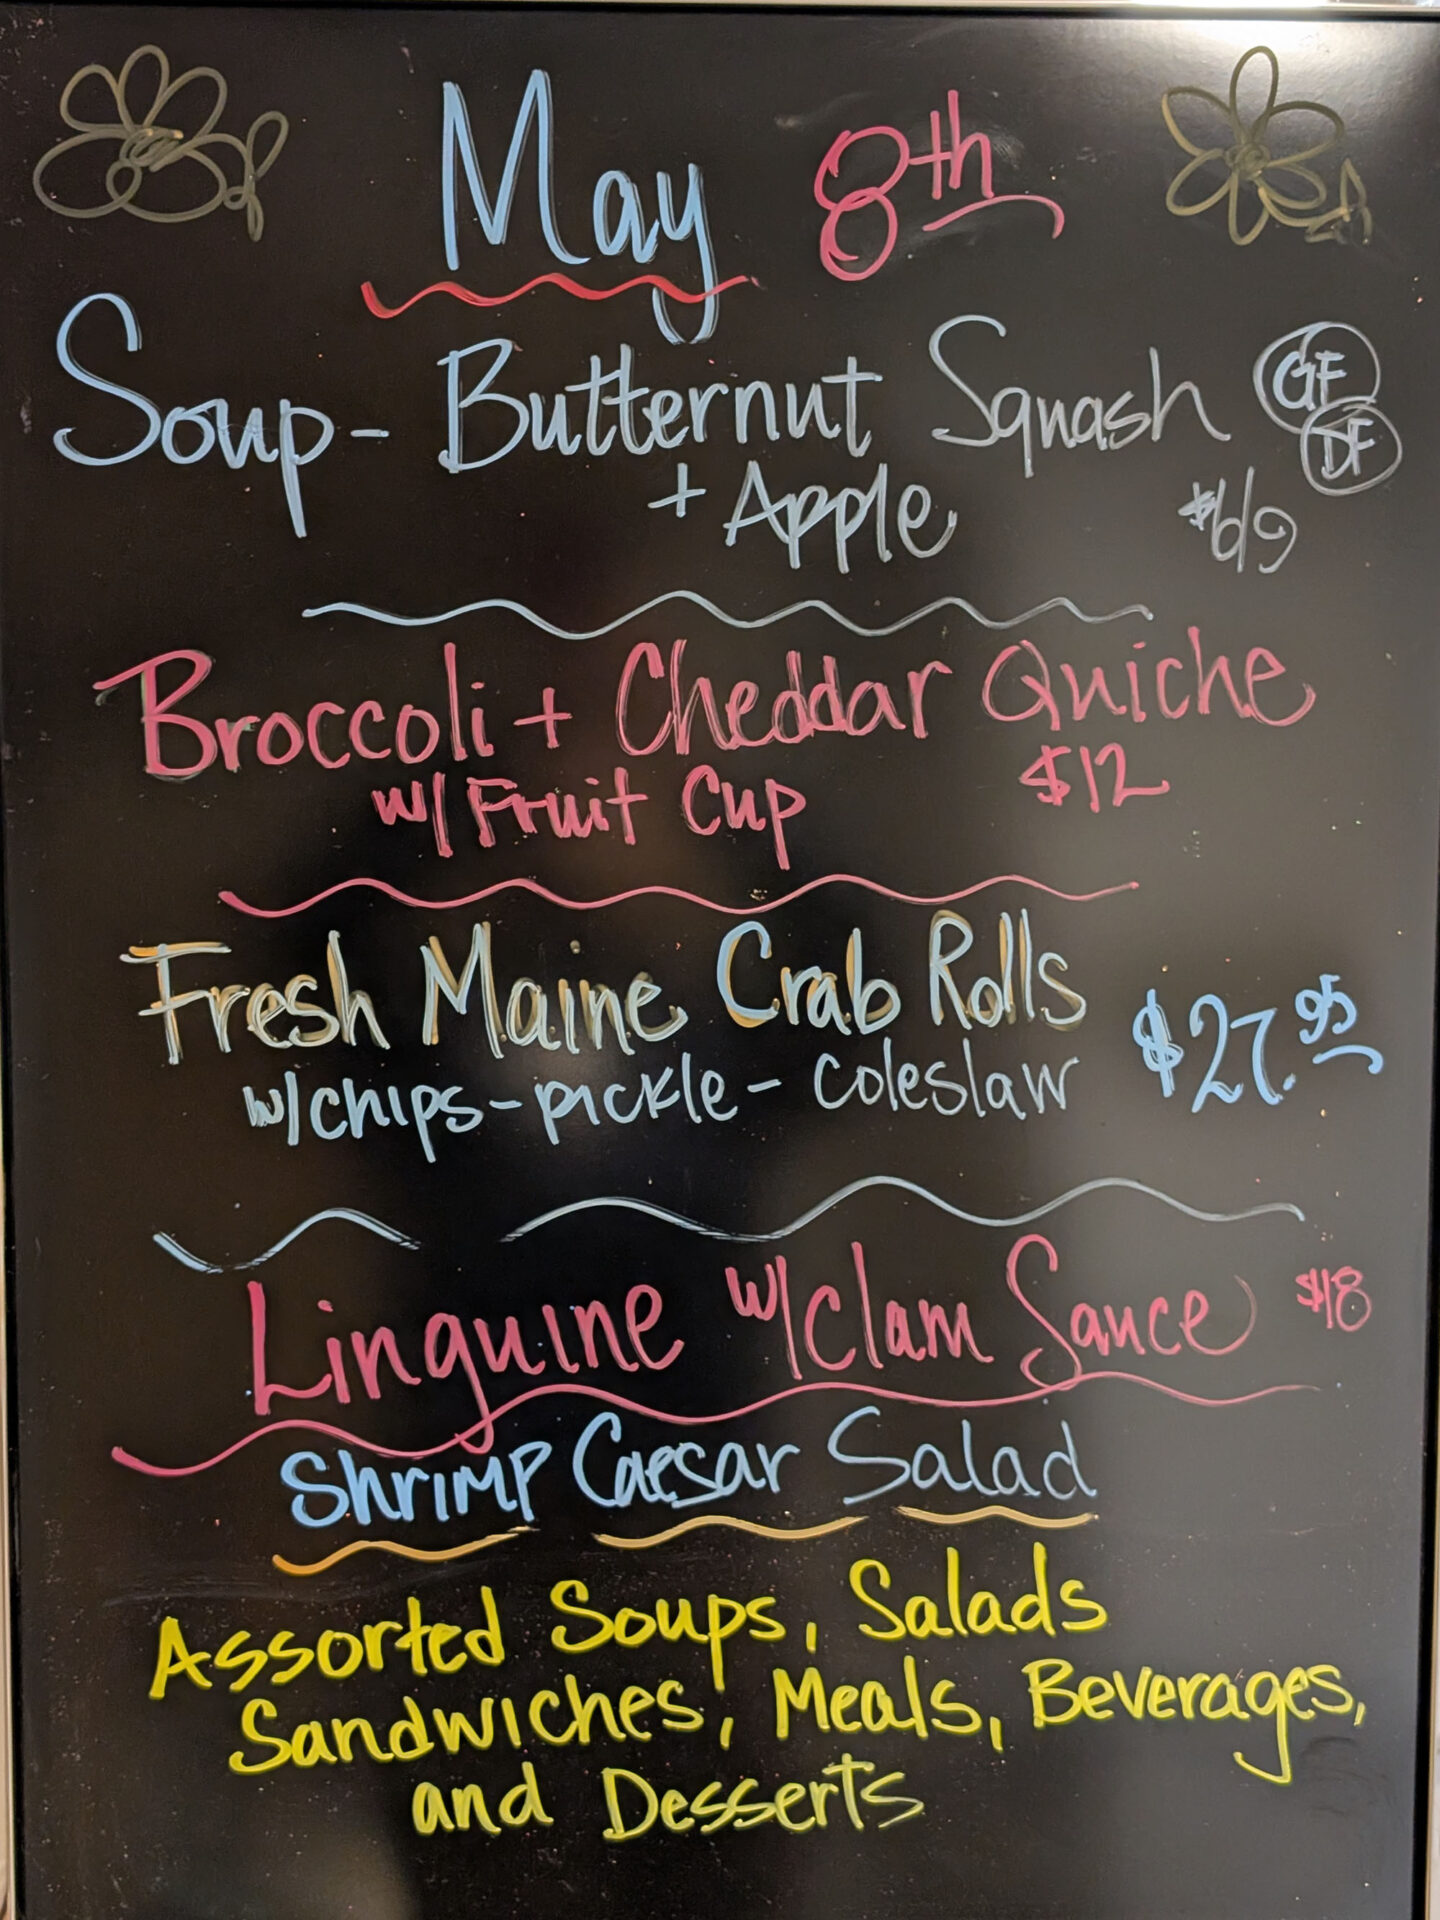 May 8th
Soup - Butternut Squash GF
DF
+ Apple $6/9
Broccoli + Cheddar Quiche
w/ Fruit Cup $12
Fresh Maine Crab Rolls
w/chips - pickle - coleslaw $27.95
Linguine w/clam Sauce $18
Shrimp Caesar Salad
Assorted Soups, Salads
Sandwiches, Meals, Beverages,
and Desserts